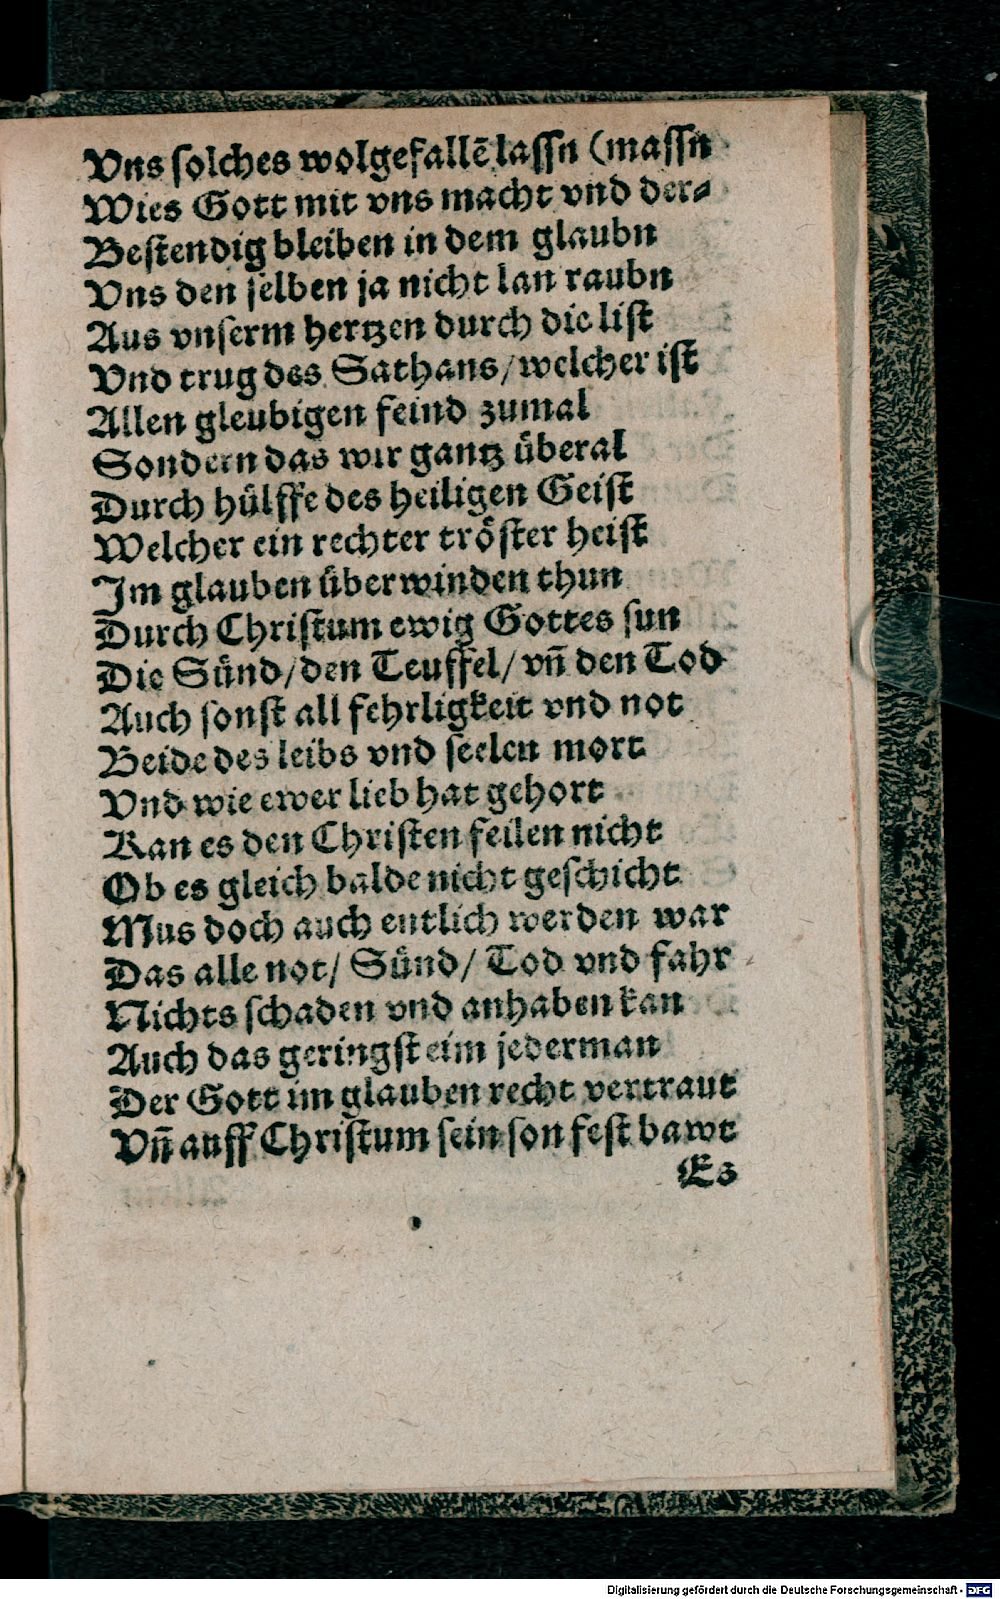 Vns ſolches wolgefallē laſſn (maſſn
Wies Gott mit vns macht vnd der⸗
Beſtendig bleiben in dem glaubn
Vns den ſelben ja nicht lan raubn
Aus vnſerm hertzen durch die liſt
Vnd trug des Sathans/welcher iſt
Allen gleubigen feind zumal
Sondern das wir gantz überal
Durch hülffe des heiligen Geiſt
Welcher ein rechter tröſter heiſt
Im glauben überwinden thun
Durch Chriſtum ewig Gottes ſun
Die Sünd/den Teuffel/vn̄ den Tod
Auch ſonſt all fehrligkeit vnd not
Beide des leibs vnd ſeelen mort
Vnd wie ewer lieb hat gehort
Kan es den Chriſten feilen nicht
Ob es gleich balde nicht geſchicht
Mus doch auch entlich werden war
Das alle not/ Sünd/ Tod vnd fahr
Nichts ſchaden vnd anhaben kan
Auch das geringſt eim jederman
Der Gott im glauben recht vertraut
Vn̄ auff Chriſtum ſein ſon feſt bawt
Es
Digitalisierung gefördert durch die Deutsche Forschungsgemeinschaft - DFG